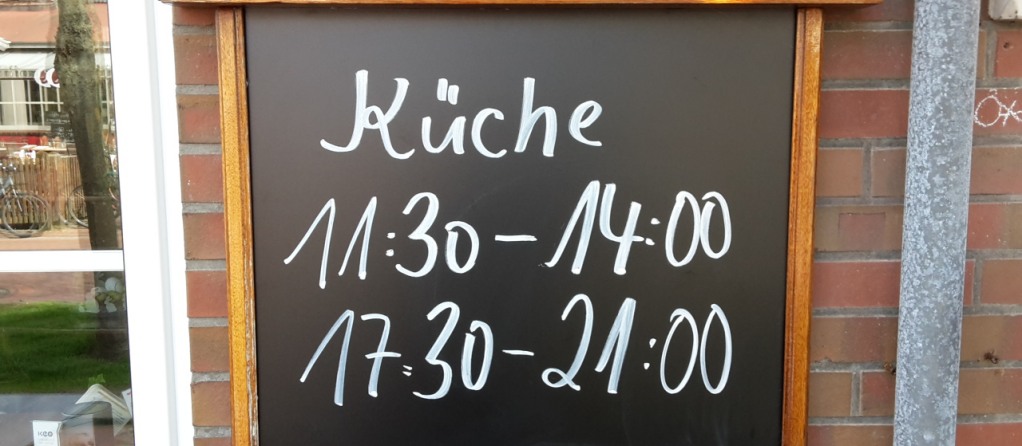 Küche
11:30 - 14:00
17:30 - 21:00